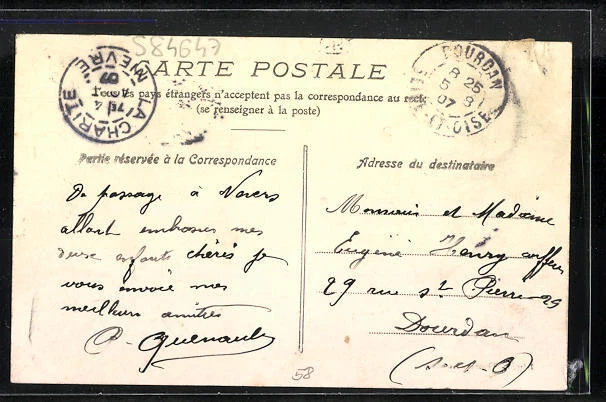 S84647
CARTE POSTALE
pays étrangers n'acceptent pas la correspondance au recto
(se renseigner à la poste)
LA CHARITÉ
NIÈVRE
07
DOURDAN
8 25
5 8
07
S.-ET-OISE
Partie réservée à la Correspondance
De passage à Nevers
allant embrasser mes
deux enfants chéris je
vous envoie mes
meilleurs amitiés
Quenault
Adresse du destinataire
Monsieur et Madame
Eugène Henry coiffeur
29 rue St Pierre 29
Dourdan
(S. et O)
58